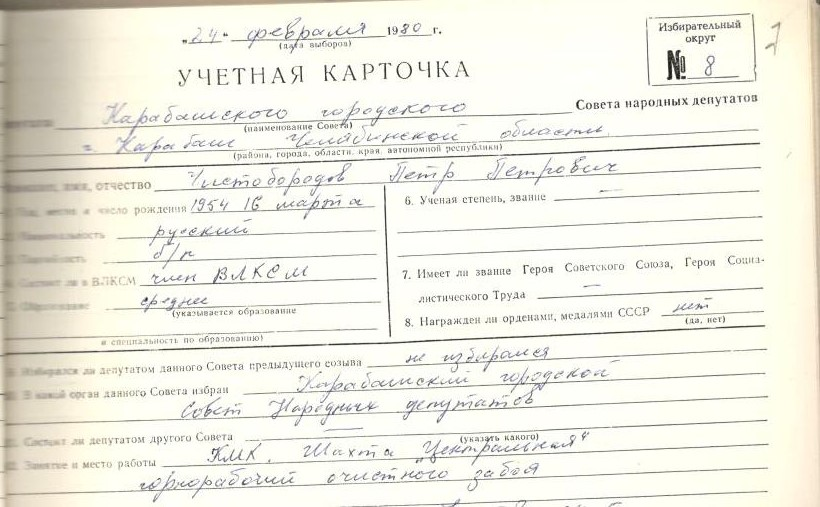 „24“ февраля 1980 г.
(дата выборов)
Избирательный
округ
№ 8
7
УЧЕТНАЯ КАРТОЧКА
Карабашского городского Совета народных депутатов
(наименование Совета)
г. Карабаш Челябинской области
(района, города, области, края, автономной республики)
имя, отчество Чистобородов Петр Петрович
и число рождения 1954 16 марта
Национальность русский
Партийность б/п
Состоит ли в ВЛКСМ член ВЛКСМ
Образование среднее
(указывается образование
и специальность по образованию)
6. Ученая степень, звание —
7. Имеет ли звание Героя Советского Союза, Героя Социа-
листического Труда —
8. Награжден ли орденами, медалями СССР нет
(да, нет)
Избирался ли депутатом данного Совета предыдущего созыва не избирался
В какой орган данного Совета избран Карабашский городской
Совет Народных депутатов
11. Состоит ли депутатом другого Совета —
(указать какого)
12. Занятие и место работы КМК, Шахта „Центральная“
горнорабочий очистного забоя